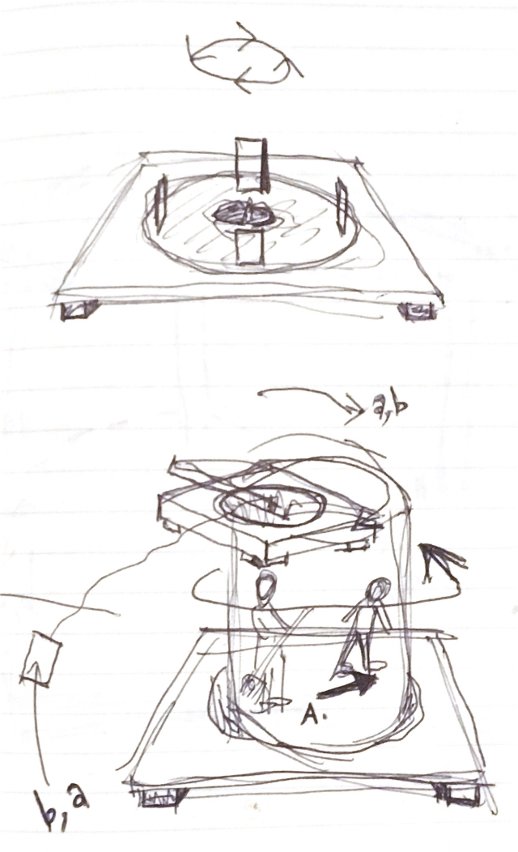 a,b
A.
b,a